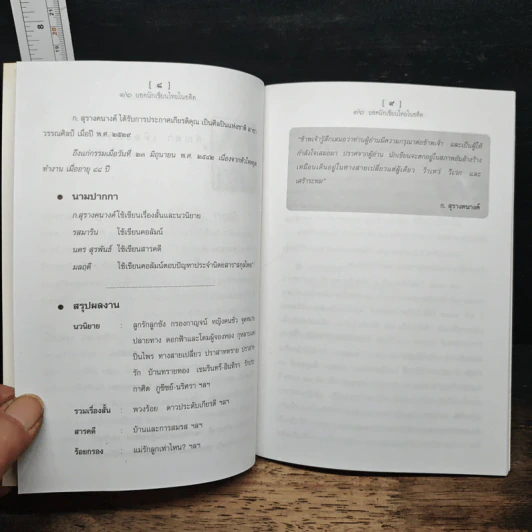 [ ๘ ]
๗๖ บทนักเขียนไทยในอดีต
ก. สุรางคนางค์ ได้รับการประกาศเกียรติคุณ เป็นศิลปินแห่งชาติ สาขา
วรรณศิลป์ เมื่อปี พ.ศ. ๒๕๒๙
ถึงแก่กรรมเมื่อวันที่ ๒๓ มิถุนายน พ.ศ. ๒๕๔๒ เนื่องจากหัวใจหยุด
ทำงาน เมื่ออายุ ๘๘ ปี
● นามปากกา
ก.สุรางคนางค์ ใช้เขียนเรื่องสั้นและนวนิยาย
รสมาริน ใช้เขียนคอลัมน์
นคร สุรพันธ์ ใช้เขียนสารคดี
มลฤดี ใช้เขียนคอลัมน์ตอบปัญหาประจำนิตยสาร"สกุลไทย"
● สรุปผลงาน
นวนิยาย : ลูกรักลูกชัง กรองกาญจน์ หญิงคนชั่ว
ปลายทาง ดอกฟ้าและโดมผู้จองหอง
ปิ่นไพร ทางสายเปลี่ยว ปราสาททราย
รัก บ้านทรายทอง เขมรินทร์-อินทิรา
กาศิต ภูชิชย์-นริศรา ฯลฯ
รวมเรื่องสั้น : พวงร้อย ดาวประดับเกียรติ ฯลฯ
สารคดี : บ้านและการสมรส ฯลฯ
ร้อยกรอง : แม่รักลูกเท่าไหน? ฯลฯ
[ ๙ ]
"ข้าพเจ้ารู้สึกเสมอว่าท่านผู้อ่านมีความกรุณาต่อข้าพเจ้า และเป็นผู้ให้
กำลังใจเสมอมา ปราศจากผู้อ่าน นักเขียนจะตกอยู่ในสภาพอันอ้างว้าง
เหมือนเดินอยู่ในทางสายเปลี่ยวแต่ผู้เดียว ว้าเหว่ วิเวก และ
เศร้าระทม"
ก. สุรางคนางค์